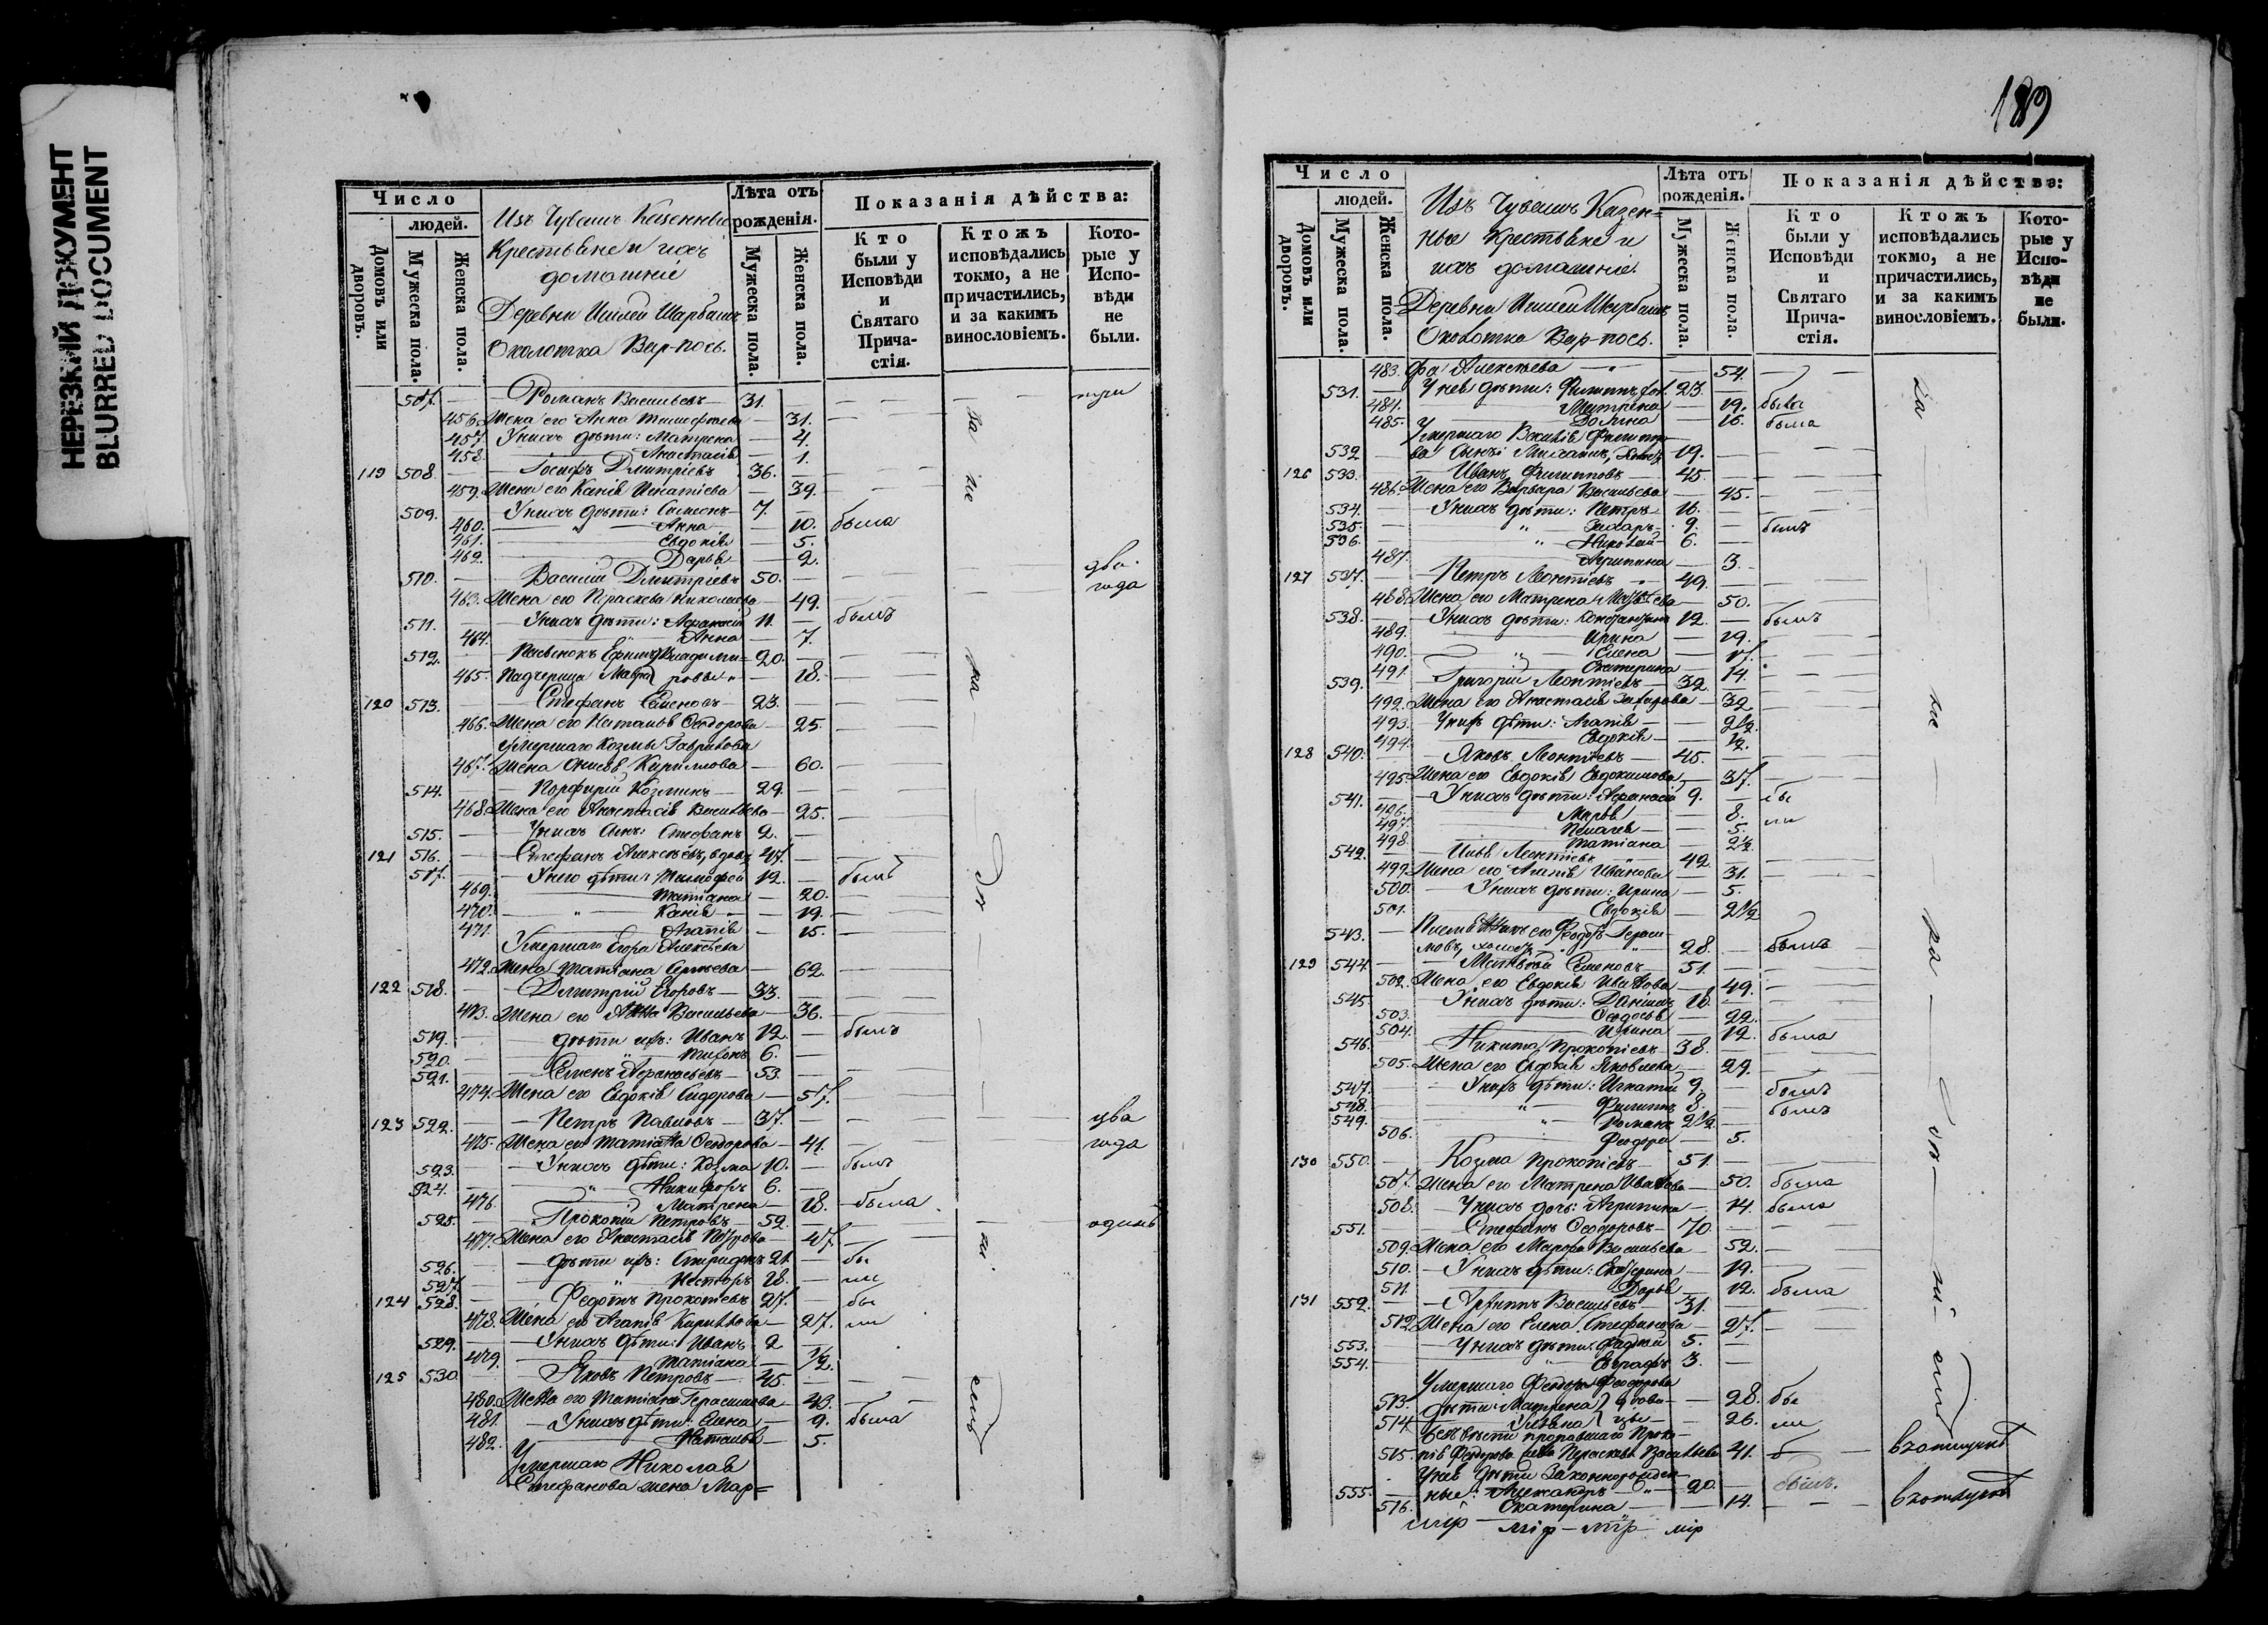 НЕРЕЗКИЙ ДОКУМЕНТ
BLURRED DOCUMENT
Число
людей.
Домовъ или дворовъ.
Мужеска пола.
Женска пола.
Изъ Чувашъ Казенные
Крестьяне и ихъ
домашніе
Деревни
Околотка Вар-посъ.
Лѣта отъ рожденія.
Мужеска пола.
Женска пола.
Показанія дѣйства:
Кто были у Исповѣди и Святаго Причастія.
Ктожъ исповѣдались токмо, а не причастились, и за какимъ винословіемъ.
Которые у Исповѣди не были.
507. Романъ Васильевъ 31. три
456. Жена его Анна Тимофеева 31.
457. У нихъ дѣти: Матрена 4.
458. Анастасія 1.
119 508. Іосифъ Дмитріевъ 36.
459. Жена его Ксенія Игнатіева 39.
509. У нихъ дѣти: Симеонъ 7.
460. Анна 10. была
461. Евдокія 5.
462. Дарья 2.
510. Василій Дмитріевъ 50. два
463. Жена его Параскева Николаева 49. года
511. У нихъ дѣти: Афанасій 11. былъ
464. Анна 7.
512. Пасынокъ Ефимъ Владими= 20.
465. Падчерица Мавра ровы 18.
120 513. Стефанъ Семеновъ 23.
466. Жена его Наталья Ѳеодорова 25.
Умершаго Козмы Гаврилова
467. Жена Кирилова 60.
514. Порфирій Козминъ 29.
468. Жена его Анастасія Васильева 25.
515. У нихъ сынъ: Стефанъ 2.
121 516. Стефанъ Алексѣевъ, вдовъ 47.
517. У него дѣти: Тимофей 12. былъ
469. Татіана 20.
470. Ксенія 19.
471. Агапія 15.
Умершаго Егора Алексѣева
472. Жена Татіана Сергѣева 62.
122 518. Дмитрій Егоровъ 33.
473. Жена его Анна Васильева 36.
519. дѣти ихъ: Иванъ 12. былъ
520. Тихонъ 6.
521. Семенъ Афанасьевъ 53.
474. Жена его Евдокія Сидорова 57.
123 522. Петръ Павловъ 37. два
475. Жена его Татіана Ѳеодорова 41. года
523. У нихъ дѣти: Козма 10. былъ
524. Никифоръ 6.
476. Матрена 18. была
525. Прокопій Петровъ 52. одинъ
477. Жена его Анастасія Петрова 47.
526. дѣти ихъ: Спиридонъ 21. бы
527. Несторъ 18. ли
124 528. Федотъ Прокопіевъ 27. бы
478. Жена его Агапія Кирилова 27. ли
529. У нихъ дѣти: Иванъ 2
479. Татіана 1/2.
125 530. Яковъ Петровъ 45.
480. Жена его Татіана Герасимова 43.
481. У нихъ дѣти: Елена 9. была
482. Наталья 5.
Умершаго Николая
Стефанова жена Мар=
189
Число
людей.
Домовъ или дворовъ.
Мужеска пола.
Женска пола.
Изъ Чувашъ Казен=
ные крестьяне и
ихъ домашніе.
Деревни
Околотка Вар-посъ.
Лѣта отъ рожденія.
Мужеска пола.
Женска пола.
Показанія дѣйства:
Кто были у Исповѣди и Святаго Причастія.
Ктожъ исповѣдались токмо, а не причастились, и за какимъ винословіемъ.
Которые у Исповѣди не были.
483. фа Алексѣева 54.
531. У нея дѣти: Филиппъ, хол. 23.
484. Матрена 19. была
485. 16. была
Умершаго Василія Филиппо-
532 ва сынъ 19.
126 533. Иванъ Филипповъ 45.
486. Жена его Варвара Васильева 45.
534. У нихъ дѣти: Петръ 16.
535. Захаръ 9. былъ
536. Николай 6.
487. Агрипина 3.
127 537. Петръ Леонтіевъ 49.
488. Жена его Матрена 50.
538. У нихъ дѣти: Константинъ 12. былъ
489. Ирина 19.
490. Елена 17.
491 Екатерина 14.
539. Григорій Леонтіевъ 32.
492. Жена его Анастасія Захарова 32
493. У нихъ дѣти: Агапія 2 1/2.
494. Евдокія 1/2.
128 540. Яковъ Леонтіевъ 45.
495. Жена его Евдокія Евдокимова 37.
541. У нихъ дѣти: Афанасій 9. бы
496. Марѳа 8. ли
497. Пелагея 5.
498. Татіана 2 1/2.
542. Илья Леонтіевъ 42.
499. Жена его Агапія Иванова 31.
500. У нихъ дѣти: Ирина 5.
501. Евдокія 2 1/2
543. его Федотъ Гераси-
мовъ, холостъ 28.
129 544. Матвѣй Семеновъ 51.
502. Жена его Евдокія Иванова 49.
545. У нихъ дѣти: Даніилъ 18.
503. Ѳеодосья 22.
504. Ирина 12. была
546. Никита Прокопіевъ 38.
505. Жена его Евдокія Яковлева 29.
547. У нихъ дѣти: Игнатій 9. былъ
548. Филиппъ 8. былъ
549. Романъ 2 1/2
506. Феодора 5.
130 550. Козма Прокопіевъ 51.
507. Жена его Матрена Иванова 50. была
508. У нихъ дочь: Агрипина 14. была
551. Стефанъ Ѳеодоровъ 70.
509. Жена его Марѳа Васильева 52.
510. У нихъ дѣти: Екатерина 19.
511. Дарья 12. была
131 552. Архипъ Васильевъ 31.
512. Жена его Елена Стефанова 27.
553. У нихъ дѣти: Фаддей 5.
554. Евграфъ 3.
Умершаго Феодора Феодорова
513. дѣти: Матрена 28. бы
514. Ульяна 26. ли
безъ вѣсти пропавшаго Проко-
515. пія Федорова жена Параскева Васильева 41.
У нея дѣти законнорожден-
555. ные: Александръ 20. былъ.
516. Екатерина 14.